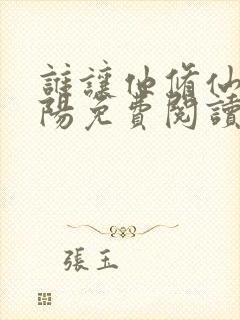 誰讓他修仙
陽免費閱讀
張玉